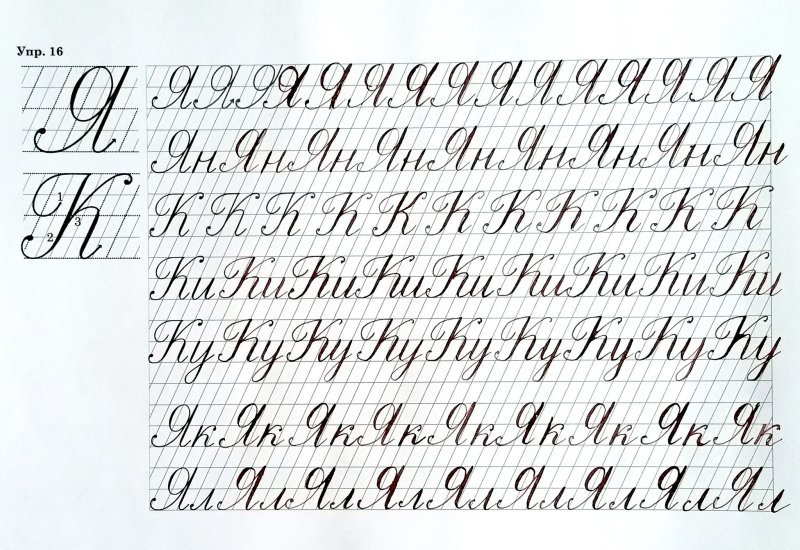 Упр. 16
Я
Я Я Я Я Я Я Я Я Я Я Я Я Я Я Я
Ян Ян Ян Ян Ян Ян Ян Ян Ян
К
1
2
3
К К К К К К К К К К К
Ки Ки Ки Ки Ки Ки Ки Ки Ки
Ку Ку Ку Ку Ку Ку Ку Ку Ку
Як Як Як Як Як Як Як Як Як
Ял Ял Ял Ял Ял Ял Ял Ял Ял